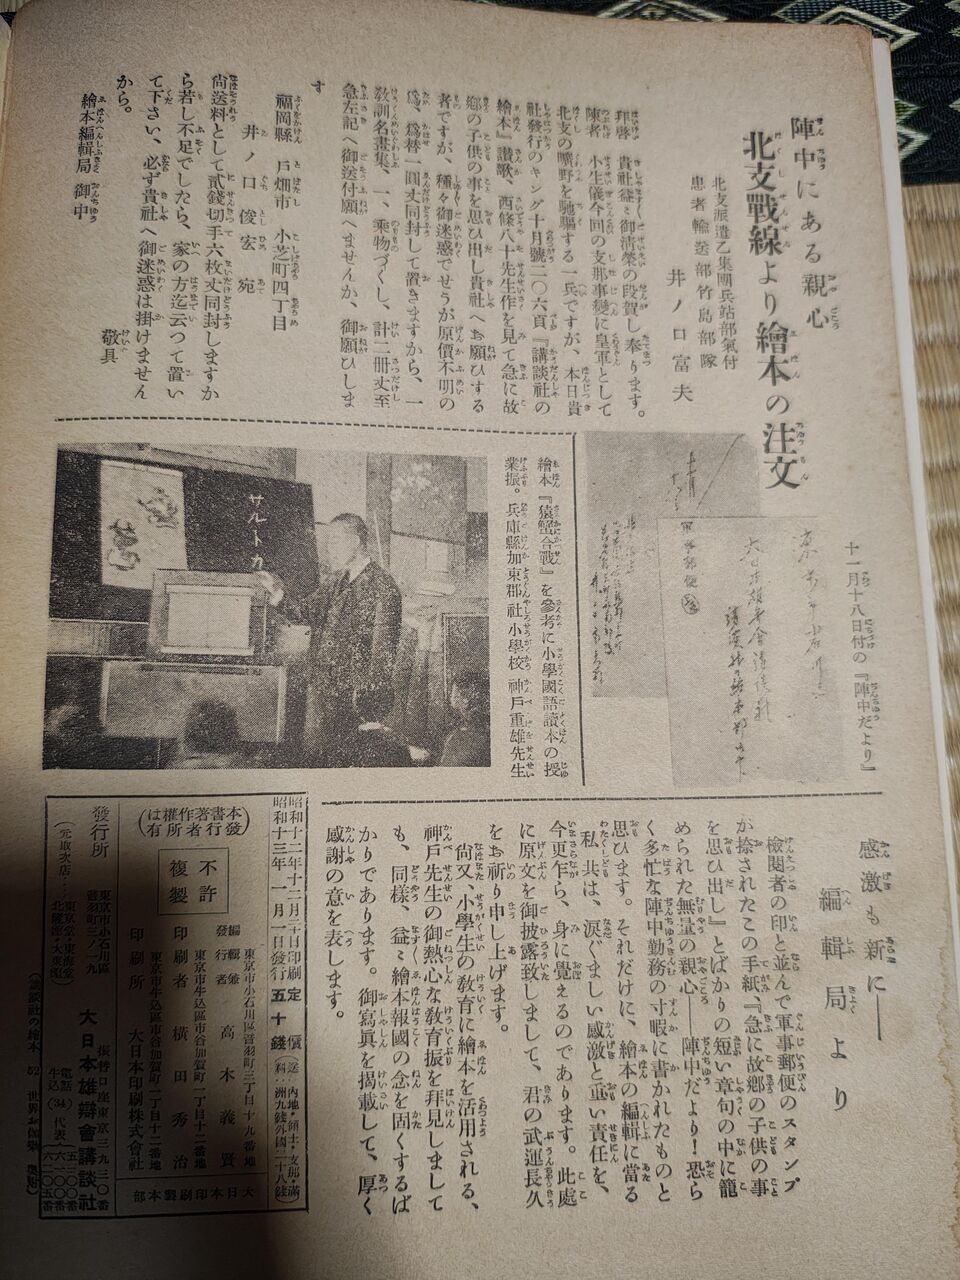 陣中にある親心
北支戰線より繪本の注文
十一月十八日付の『陣中だより』
北支派遣乙集團兵站部氣付
患者輸送部竹島部隊
井ノ口富夫
拜啓 貴社益々御淸榮の段賀し奉ります。
陳者 小生儀今回の支那事變に皇軍として
北支の曠野を馳驅する一兵ですが、本日貴
社發行のキング十月號二〇六頁『講談社の
繪本』讃歌、西條八十先生作を見て急に故
鄕の子供の事を思ひ出し貴社へお願ひする
者ですが、種々御迷惑でせうが原價不明の
爲、爲替一圓丈同封して置きますから、一
敎訓名畫集、一、乘物づくし、計二册丈至
急左記へ御送付願へませんか、御願ひしま
す
福岡縣 戶畑市 小芝町四丁目
井ノ口俊宏 宛
尙送料として貳錢切手六枚丈同封しますか
ら若し不足でしたら、家の方迄云つて置い
て下さい、必ず貴社へ御迷惑は掛けません
から。
敬具
繪本編輯局 御中
軍事郵便
繪本『猿蟹合戰』を參考に小學國語讀本の授
業振。兵庫縣加東郡社小學校 神戶重雄先生
サルトカ
感激も新に――
編輯局より
檢閱者の印と並んで軍事郵便のスタンプ
が捺されたこの手紙、『急に故鄕の子供の事
を思ひ出し』とばかりの短い章句の中に籠
められた無量の親心――陣中だより！恐ら
く多忙な陣中勤務の寸暇に書かれたものと
思ひます。それだけに、繪本の編輯に當る
私共は、淚ぐましい感激と重い責任を、
今更乍ら、身に覺えるのであります。此處
に原文を御披露致しまして、君の武運長久
をお祈り申し上げます。
尙又、小學生の敎育に繪本を活用される、
神戶先生の御熱心な敎育振を拜見しまして
も、同樣、益々繪本報國の念を固くするば
かりであります。御寫眞を揭載して、厚く
感謝の意を表します。
昭和十二年十二月二十日印刷
昭和十三年一月一日發行
定價 五十錢
(送料 內地・領土・支那・滿洲九錢 外國二十八錢)
(本書著作權は發行所有)
不許複製
編輯兼發行者 東京市小石川區音羽町三丁目十九番地 高木義賢
印刷者 東京市牛込區市谷加賀町一丁目十二番地 橫田秀治
印刷所 東京市牛込區市谷加賀町一丁目十二番地 大日本印刷株式會社
大日本印刷製本部
發行所 東京市小石川區音羽町三ノ一九 大日本雄辯會講談社
振替口座東京三九三〇番
電話牛込(34)代表
(元取次店……東京堂・東海堂・北隆館・大東館)
(講談社の繪本 52 世界お伽集